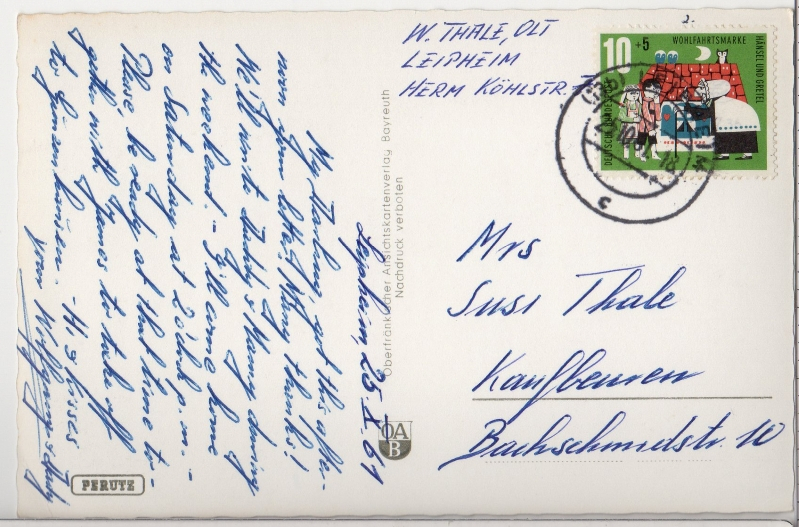 W. THALE, OLT
LEIPHEIM
HERM KÖHLSTR
10 +5 WOHLFAHRTSMARKE
HÄNSEL UND GRETEL
DEUTSCHE BUNDESPOST
Mrs
Susi Thale
Kaufbeuren
Bachschmidstr. 10
Oberfränkischer Ansichtskartenverlag Bayreuth
Nachdruck verboten
OA
B
PERUTZ
Leipheim, 25. I. 61
My Darling, got this after-
noon your letter. Many thanks!
We'll write Daddy & Mumy during
the weekend. - I'll come home
on Saturday at 2 o'clock p.m. -
Please, be ready at that time to-
gether with James to take off
to
- Kisses
your Wolfgang